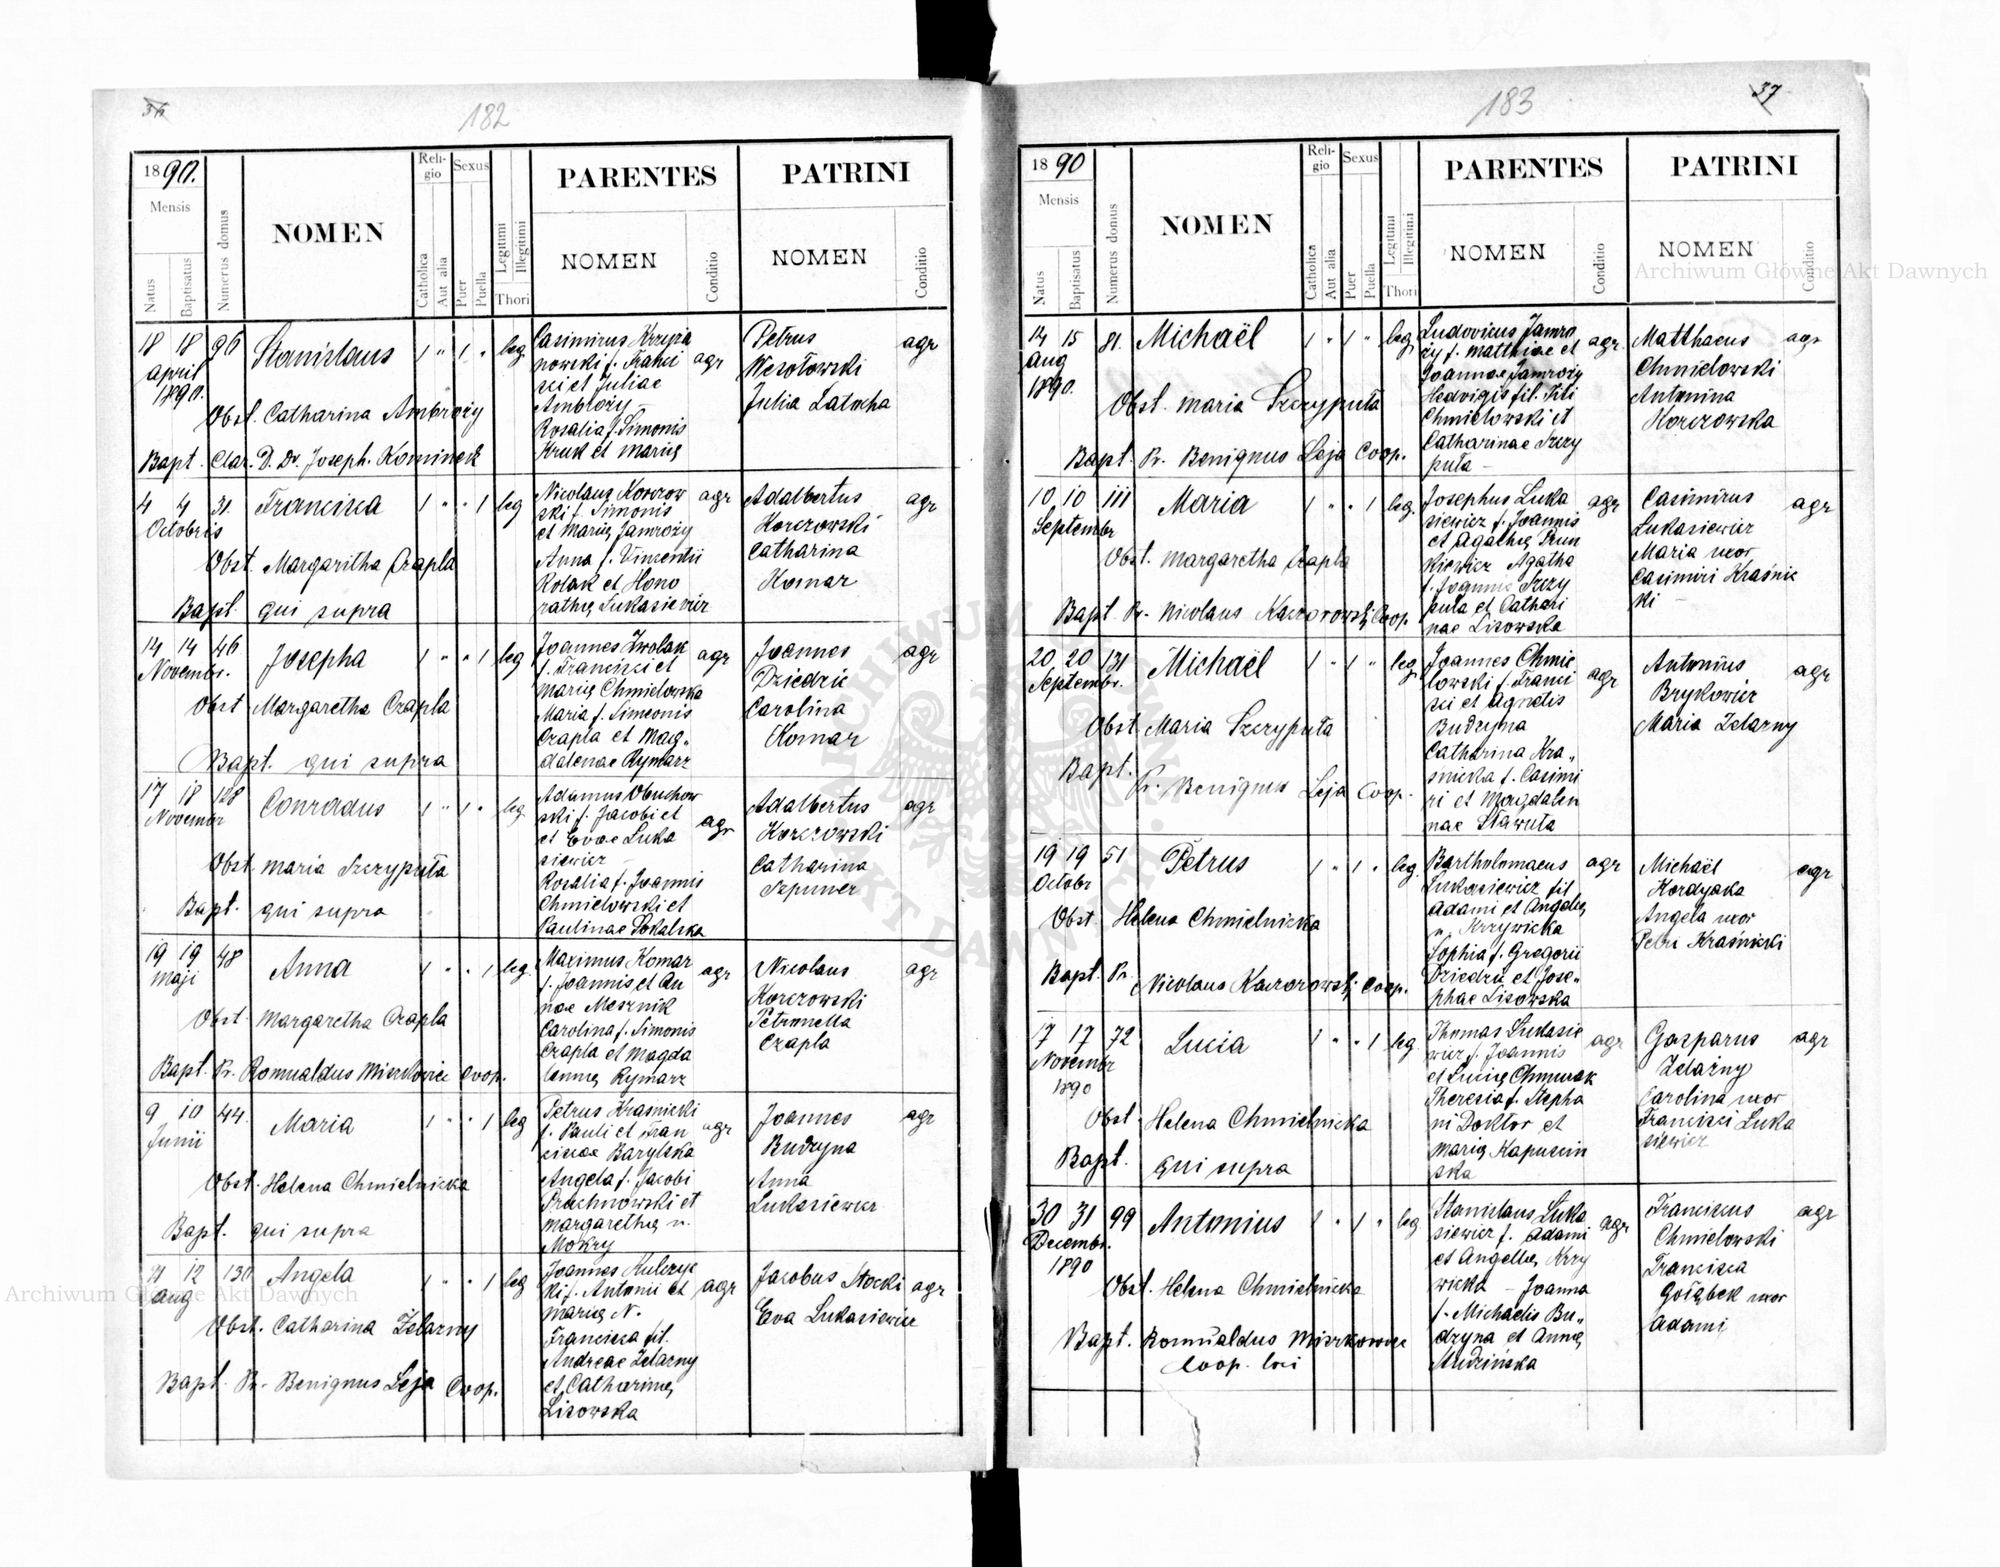 36
182
1890.
Mensis
Natus
Baptisatus
Numerus domus
NOMEN
Religio
Catholica
Aut alia
Sexus
Puer
Puella
Legitimi
Illegitimi
Thori
PARENTES
NOMEN
Conditio
PATRINI
NOMEN
Conditio
18 18 96 Stanislaus 1 " 1 " leg.
April
1890.
Obst. Catharina Ambroży
Bapt. Clar. D. Dr. Joseph. Kominek
Casimirus Krzyża
nowski f. Franci
sci et Juliae
Ambroży –
Rosalia f. Simonis
Kruk et Marię
agr
Petrus
Wesołowski
Julia Latocha
agr
4 4 31. Francisca 1 " " 1 leg
Octobris
Obst. Margaritha Czapla
Bapt. qui supra
Nicolaus Korczow
ski f. Simonis
et Marię Jamroży
Anna f. Vincentii
Kołak et Hono
rathę Łukasiewicz
agr
Adalbertus
Korczowski
Catharina
Komar
agr
14 14 46 Josepha 1 " " 1 leg
Novembr.
Obst Margaretha Czapla
Bapt. qui supra
Joannes Zwolak
f. Francisci et
Marię Chmielowska
Maria f. Simeonis
Czapla et Mag„
dalenae Rymarz
agr
Joannes
Dziedzic
Carolina
Komar
agr
17 18 128 Conradus 1 " 1 " leg.
Novembr
Obst. Maria Szczyputa
Bapt. qui supra
Adamus Obuchow
ski f. Jacobi et
et Evae Łuka
siewicz –
Rosalia f. Joannis
Chmielowski et
Paulinae Pokalska
agr
Adalbertus
Korczowski
Catharina
Szpuner
agr
19 19 48 Anna 1 " " 1 leg.
Maji
Obst. Margaretha Czapla
Bapt. Pr. Romualdus Mierkowicz Coop.
Maximus Komar
f. Joannis et An
nae Mesznik
Carolina f. Simonis
Czapla et Magda
lennę Rymarz
agr
Nicolaus
Korczowski
Petronella
Czapla
agr
9 10 44. Maria 1 " " 1 leg
Junii
Obst. Helena Chmielnicka
Bapt. qui supra
Petrus Kraśnicki
f. Pauli et Fran
ciscae Barylska
Angela f. Jacobi
Prochnowski et
Margarethę n.
Mokry
agr
Joannes
Budzyna
Anna
Łukasiewicz
agr
12 130 Angela 1 " " 1 leg
Aug
Obst. Catharina Żelazny
Bapt. Pr. Benignus Leja Coop.
Joannes Kulczyc
ki f. Antonii et
Marię N.
Francisca fil.
Andreae Żelazny
et Catharinę
Lisowska
agr
Jacobus Stocki
Eva Łukasiewicz
agr
183
37
1890
Mensis
Natus
Baptisatus
Numerus domus
NOMEN
Religio
Catholica
Aut alia
Sexus
Puer
Puella
Legitimi
Illegitimi
Thori
PARENTES
NOMEN
Conditio
PATRINI
NOMEN
Conditio
14 15 81. Michaël 1 " 1 " leg.
Aug
1890.
Obst. Maria Szczyputa
Bapt. Pr. Benignus Leja Coop.
Ludovicus Jamro
ży f. Matthiae et
Joannae Jamroży
Hedvigis fil. Titi
Chmielowski et
Catharinae Szczy
puta –
agr
Matthaeus
Chmielowski
Antonina
Korczowska
agr
10 10 111 Maria 1 " " 1 leg.
Septembr
Obst. Margaretha Czapla
Bapt. Pr. Nicolaus Kaczorowski Coop.
Josephus Łuka
siewicz f. Joannis
et Agathę
kiewicz Agatha
f. Joannis Szczy
puta et Cathari
nae Lisowska
agr
Casimirus
Łukasiewicz
Maria uxor
Casimiri Kraśnic
ki –
agr
20 20 131 Michaël 1 " 1 " leg
Septembr.
Obst. Maria Szczyputa
Bapt. Pr. Benignus Leja Coop.
Joannes Chmie
lowski f. Franci
sci et Agnetis
Budzyna
Catharina Kra„
śnicka f. Casimi
ri et Magdalen
nae Stawuta
agr
Antonius
Brykowicz
Maria Żelazny
agr
19 19 51 Petrus 1 " 1 " leg.
Octobr
Obst. Helena Chmielnicka
Bapt. Pr. Nicolaus Kaczorowski Coop.
Bartholomaeus
Łukasiewicz fil
Adami et Angelę
" Krzywicka
Sophia f. Gregorii
Dziedzic et Jose„
phae Lisowska
agr
Michaël
Kordyaka
Angela uxor
Petri Kraśnicki
agr
17 17 72 Lucia 1 " " 1 leg.
Novembr
1890
Obst. Helena Chmielnicka
Bapt. qui supra
Thomas Łukasie
wicz f. Joannis
et Lucię Chmurak
Theresia f. Stepha
ni Doktor et
Marię Kapuscin
ska
agr
Gasparus
Żelazny
Carolina uxor
Francisci Łuka
siewicz
agr
30 31 99 Antonius 1 " 1 " leg.
Decembr.
1890
Obst. Helena Chmielnicka
Bapt. Romualdus Mierkowicz
Coop. loci
Stanislaus Łuka
siewicz f. Adami
et Angellę Krzy
wicka – Joanna
f. Michaelis Bu„
dzyna et Annę
Mudzińska
agr
Franciscus
Chmielowski
Francisca
Gołąbek uxor
Adami
agr
Archiwum Główne Akt Dawnych
Archiwum Główne Akt Dawnych
ARCHIWUM GŁÓWNE AKT DAWNYCH